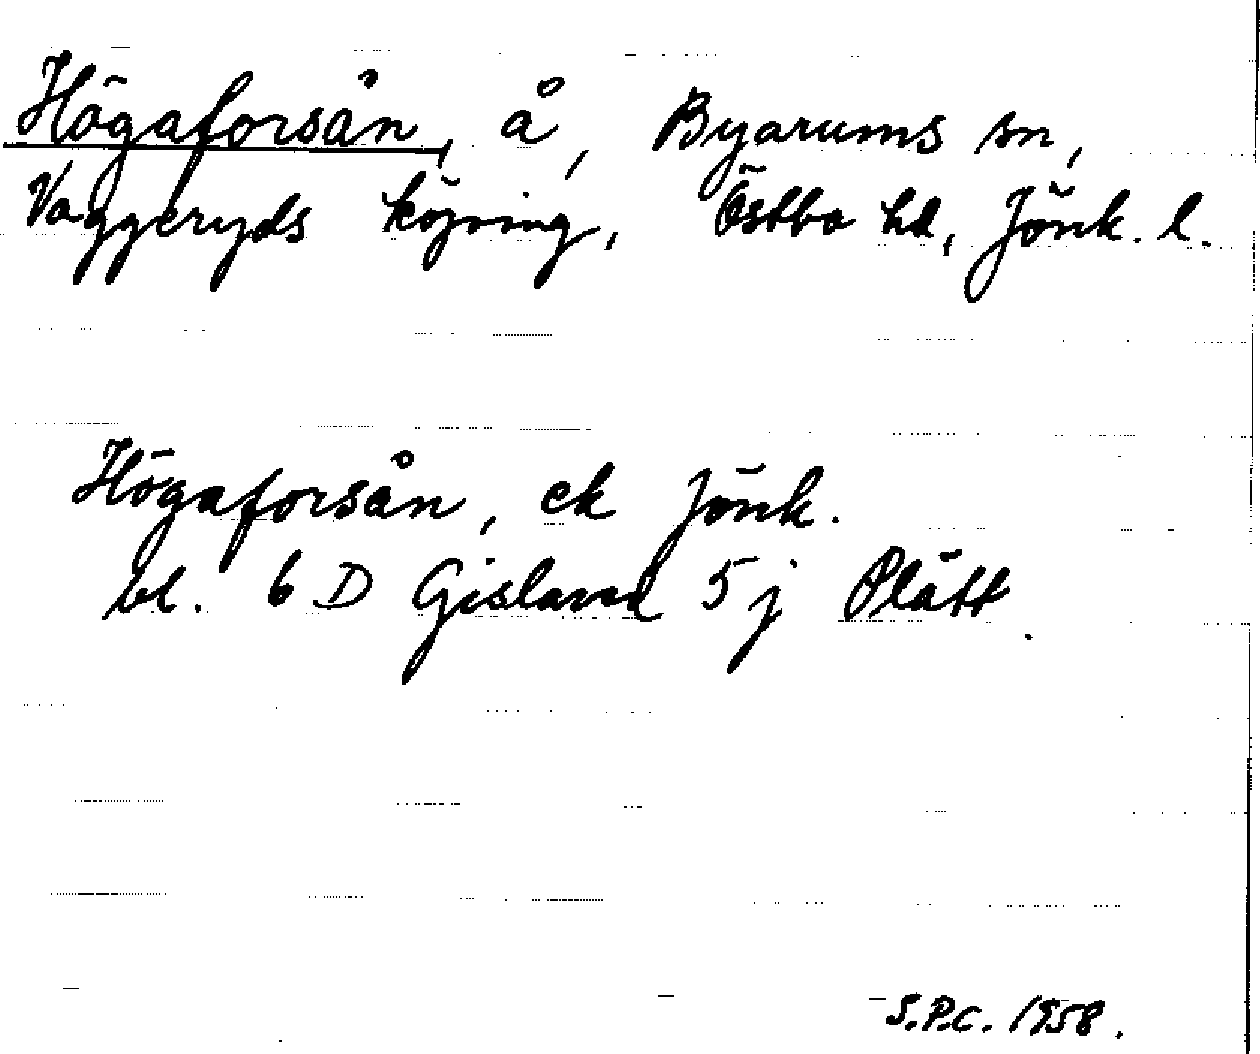 Högaforsån, å, Byarums sn,
Vaggeryds köping, Östbo hd, Jönk. l.
Högaforsån, ek Jönk.
bl. 6 D Gislaved 5 j Plätt.
S.P.C. 1958.